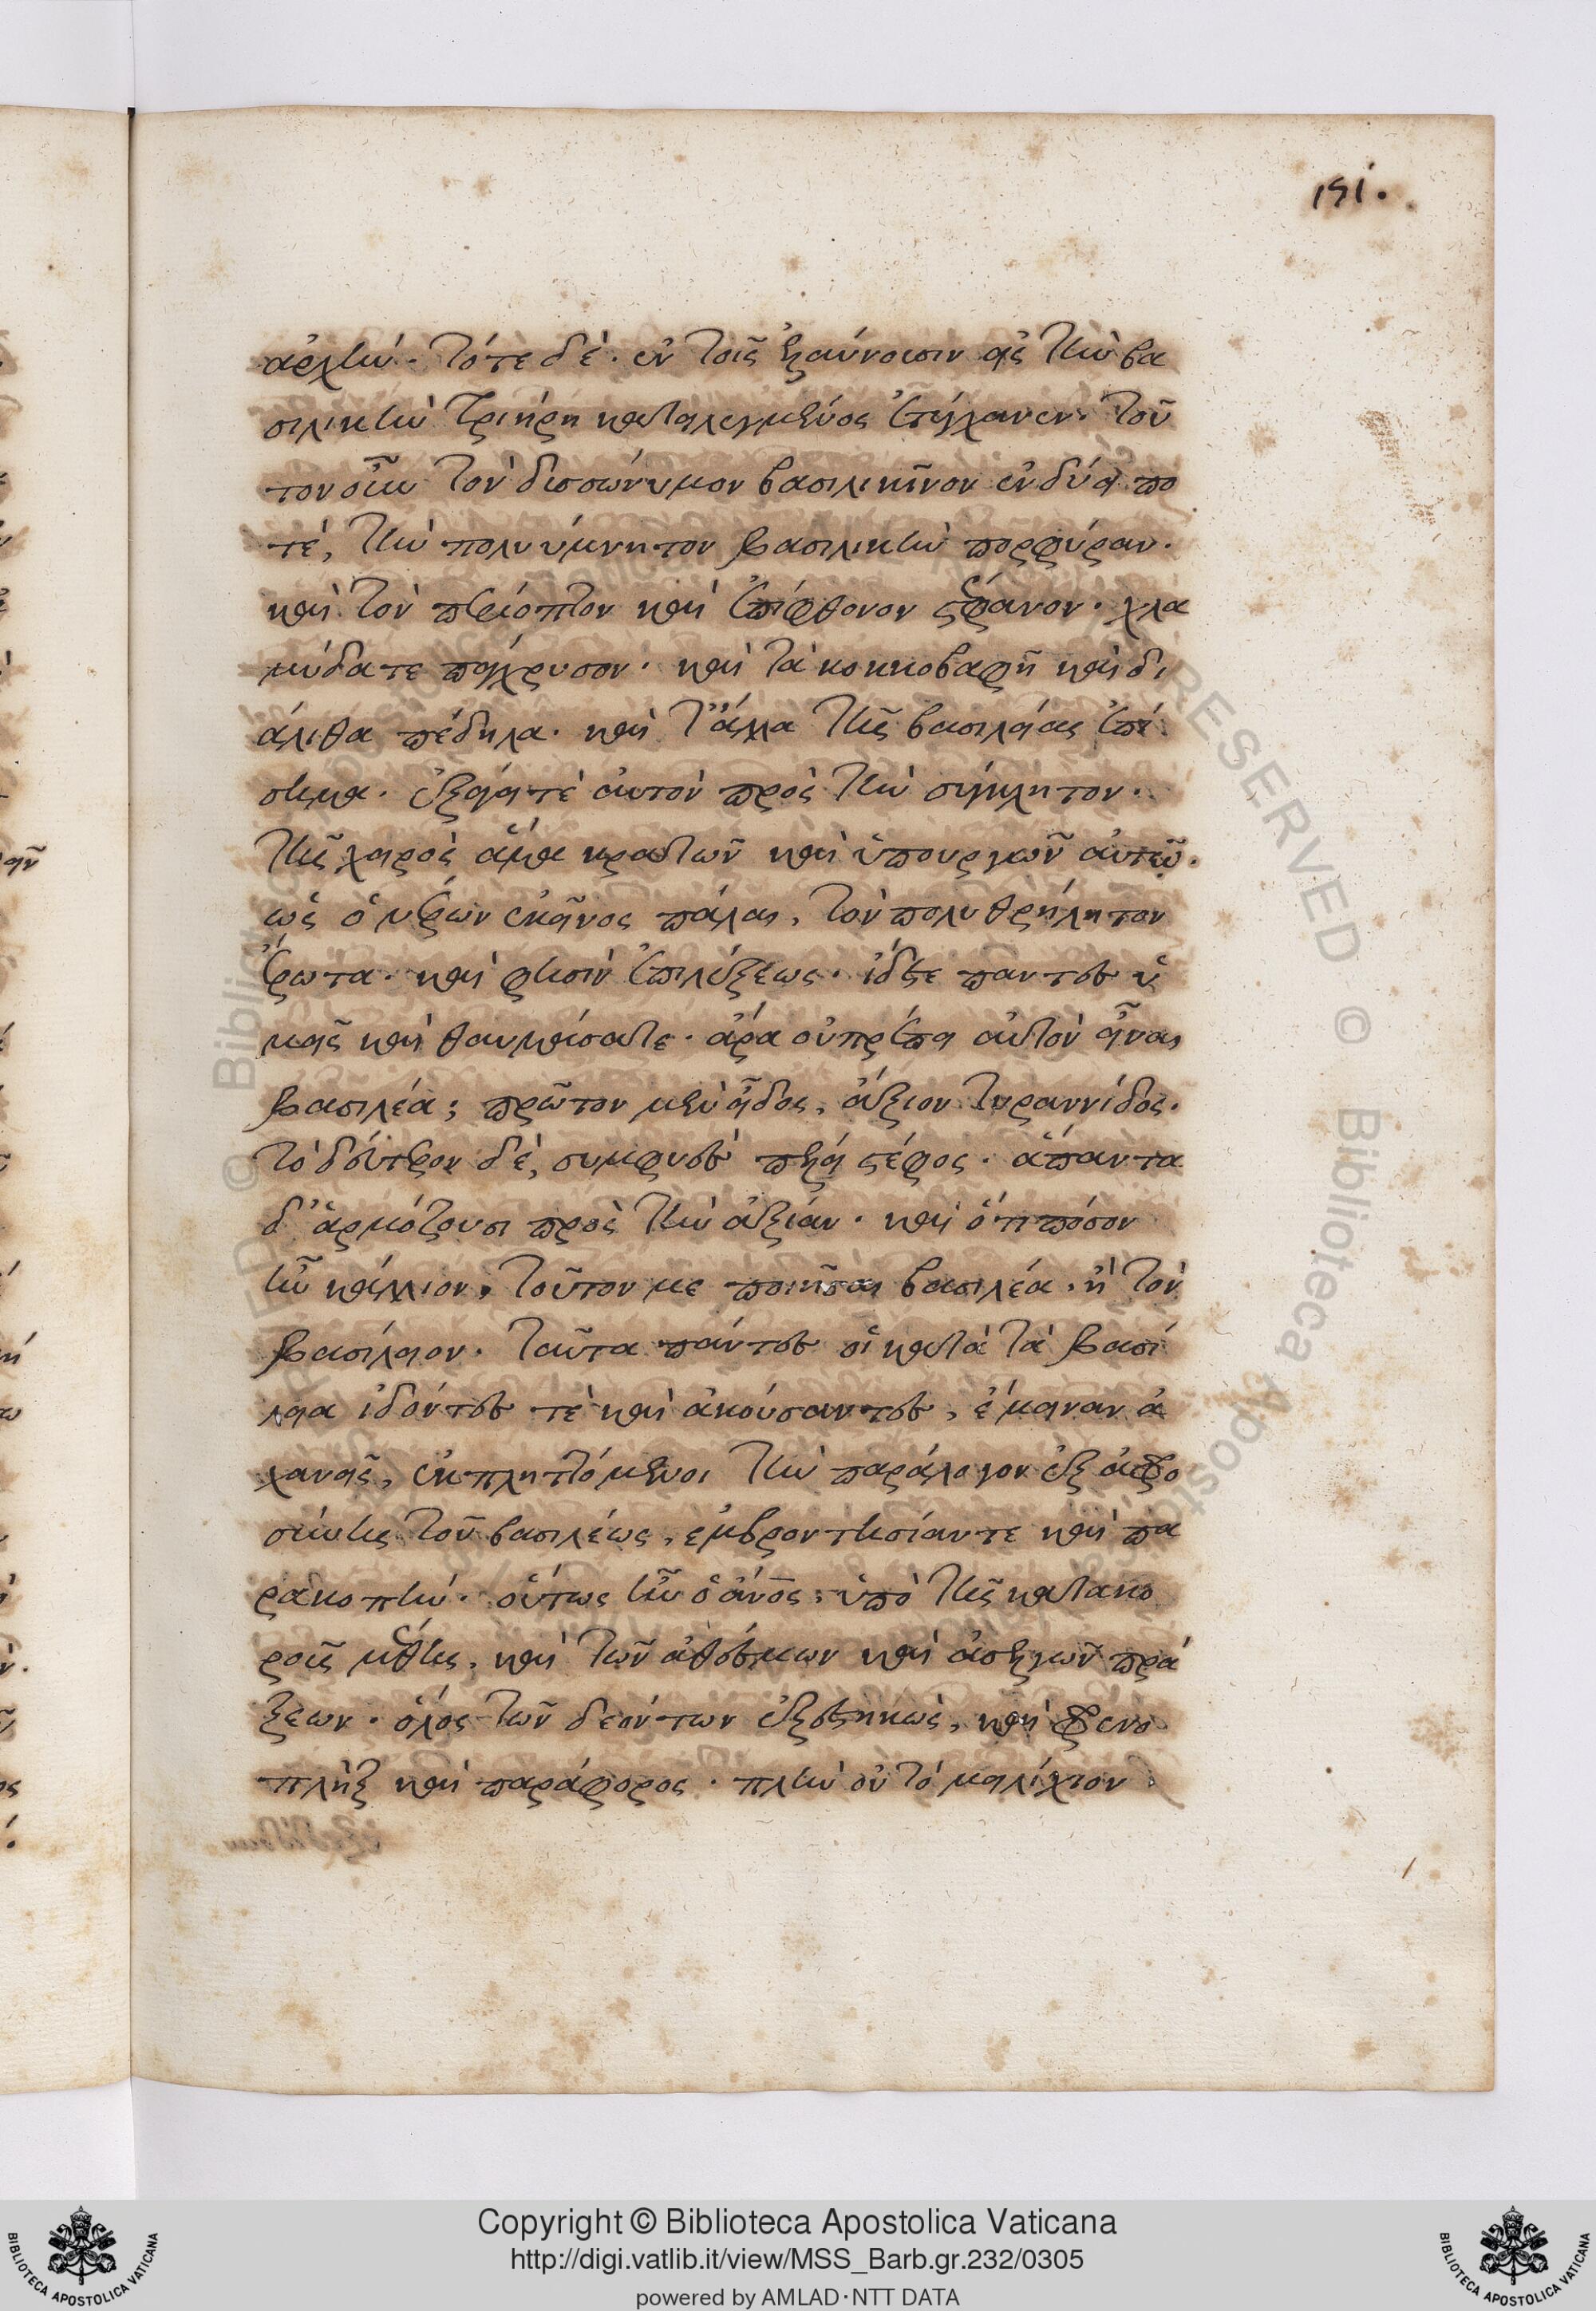 151.
ἀρχήν. τότε δὲ. ἐν τοῖς ἐξαύνοισιν εἰς τὴν βα
σιλικὴν τριήρη καταλεγμένος ἐτύγχανεν. τοῦ
τον οὖν τὸν δισσώνυμον βασιλικῖνον ἐνδύει πο
τέ, τὴν πολυύμνητον βασιλικὴν πορφύραν.
καὶ τὸν περίοπτον καὶ ἐπίφθονον στέφανον. χλα
μύδα τε πάγχρυσον. καὶ τὰ κοκκοβαφῆ καὶ δι
άλιθα πέδηλα. καὶ τἄλλα τῆς βασιλείας ἐπί
σημα. ἐξάγει τὲ αὐτὸν πρὸς τὴν σύγκλητον.
τῆς χειρὸς ἅμα κρατῶν καὶ ὑπουργῶν αὐτῷ.
ὡς ὁ νέρων ἐκεῖνος πάλαι, τὸν πολυθρήλητον
ἔρωτα. καὶ φησὶν ἐπιλέξεως. ἴδετε παντες ὑ
μεῖς καὶ θαυμάσατε. ἆρα οὐ πρέπει αὐτὸν εἶναι
βασιλέα; πρῶτον μὲν εἶδος, ἄξιον τυραννίδος.
τὸ δεύτερον δὲ, συμφυὲς πέλει στέφος. ἅπαντα
δ' ἁρμόζουσι πρὸς τὴν ἀξίαν. καὶ ὅτι πόσον
ἦν κάλλιον, τοῦτον με ποιῆσαι βασιλέα. ἢ τὸν
βασίλειον. ταῦτα πάντες οἱ κατὰ τὰ βασί
λεια ἰδόντες τὲ καὶ ἀκούσαντες, ἔμειναν ἀ
χανεῖς, ἐκπληττόμενοι τὴν παράλογον ἐξ ἀφρο
σύνης τοῦ βασιλέως, ἐμβροντησίαν τε καὶ πα
ρακοπὴν. οὕτως ἦν ὁ ἄνος, ὑπὸ τῆς κατακο
ροῦς μέθης, καὶ τῶν ἀθέσμων καὶ ἀσελγῶν πρά
ξεων. ὅλος τῶν δεόντων ἐξεστηκὼς, καὶ φρενο
πλὴξ καὶ παράφορος. πλὴν οὐ τὸ μειλίχιον